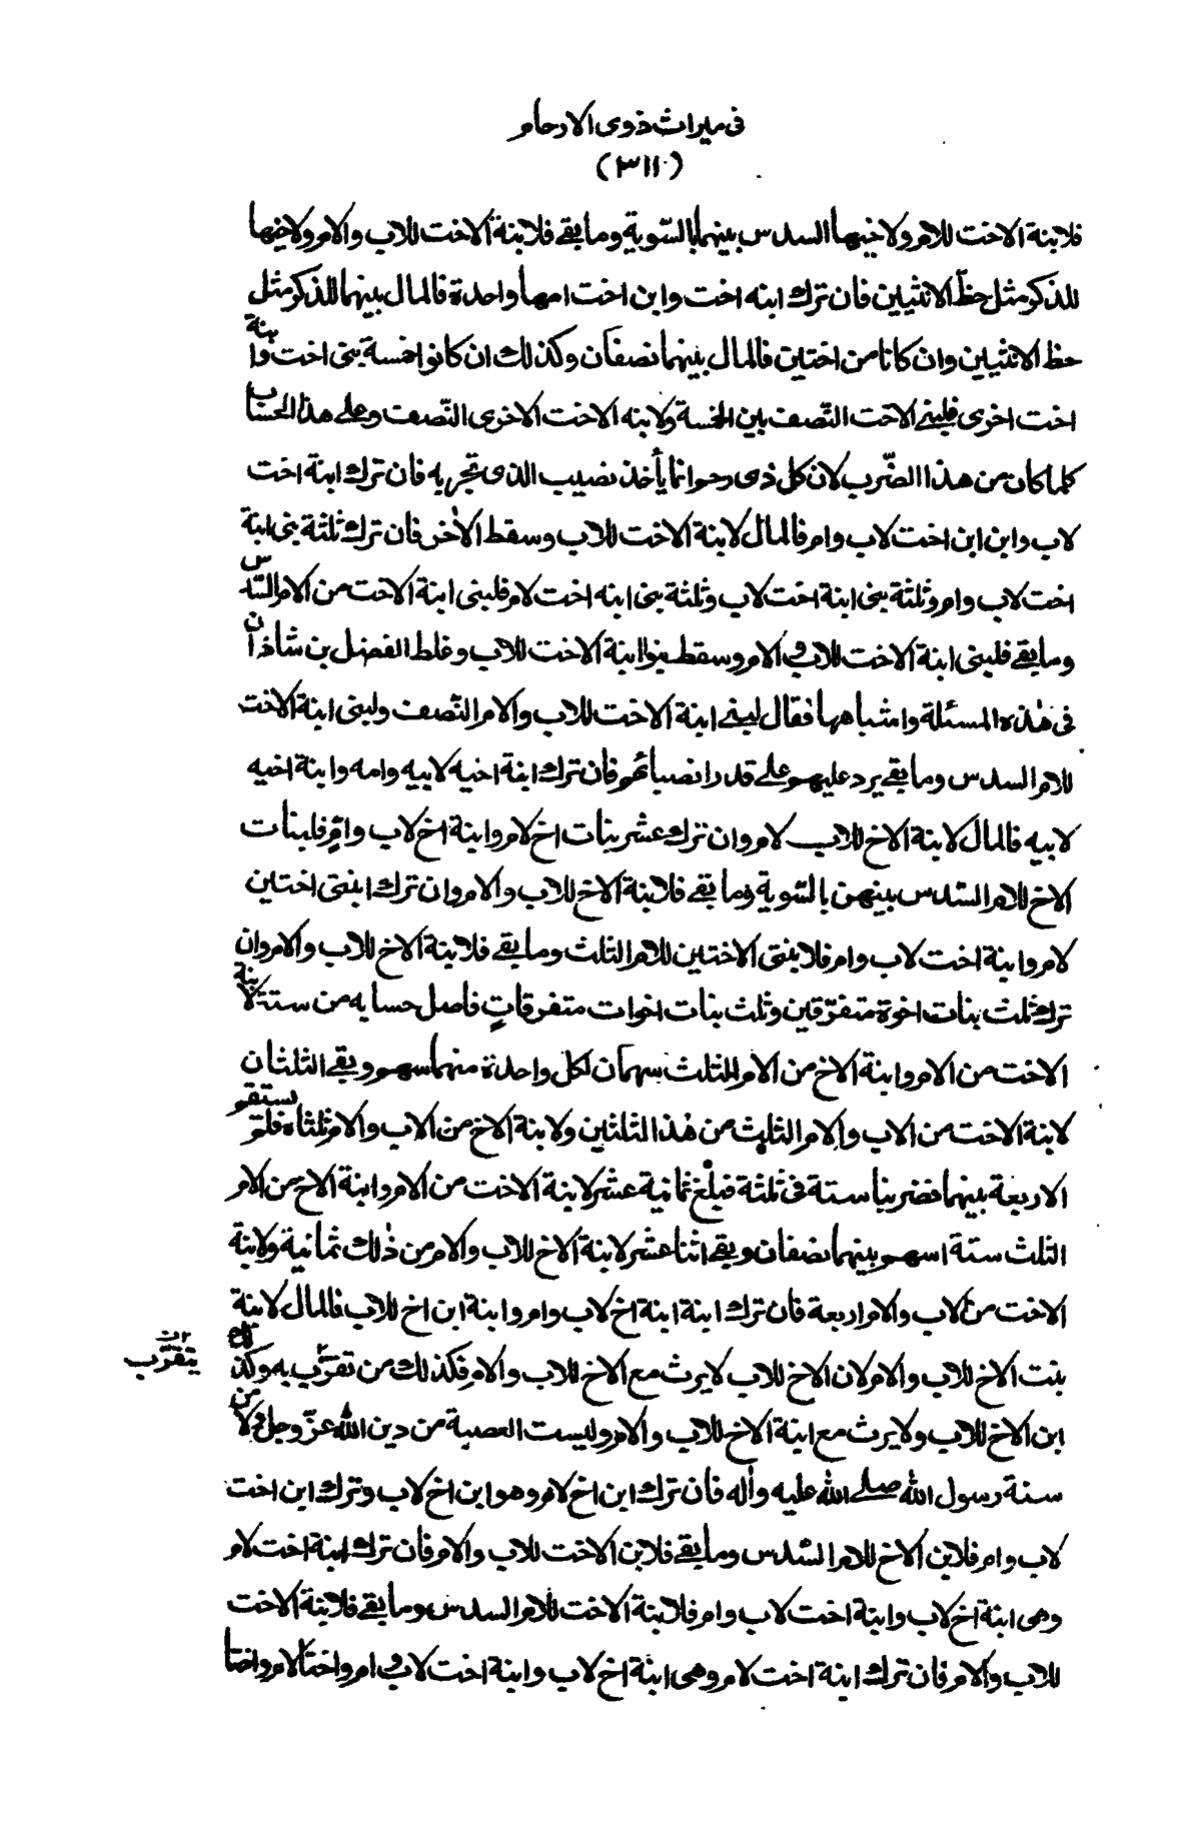 فى ميراث ذوى الارحام
(٣١١)
فلابنة الاخت للام ولاخيها السدس بينهما بالسّوية وما بقى فلابنة الاخت للاب والام ولاخيها
للذكر مثل حظّ الانثيين فان ترك ابنه اخت وابن اخت امهما واحدة فالمال بينهما للذكر مثل
حظ الانثيين وان كانا من اختين فالمال بينهما نصفان وكذلك ان كانوا خمسة بنى اخت وابنة
اخت اخرى فلبنى الاخت النّصف بين الخمسة ولابنه الاخت الاخرى النّصف وعلى هذا الحساب
كلما كان من هذا الضّرب لان كل ذى رحم انما يأخذ نصيب الذى تجر به فان ترك ابنة اخت
لاب وابن ابن اخت لاب وام فالمال لابنة الاخت للاب وسقط الاخر فان ترك ثلثة بنى ابنة
اخت لاب وام وثلثة بنى ابنة اخت لاب وثلثة بنى ابنه اخت لام فلبنى ابنة الاخت من الام السّدس
وما بقى فلبنى ابنة الاخت للاب و الام وسقط بنوا ابنة الاخت للاب وغلط الفضل بن شاذان
فى هذه المسئلة واشباهها فقال لبنى ابنة الاخت للاب والام النّصف ولبنى ابنة الاخت
للام السدس وما بقى يرد عليهم على قدر انصبائهم فان ترك ابنة اخيه لابيه وامه وابنة اخيه
لابيه فالمال لابنة الاخ للاب لام وان ترك عشر بنات اخ لام وابنة اخ لاب وامّ فلبنات
الاخ للام السّدس بينهن بالسّوية وما بقى فلابنة الاخ للاب والام وان ترك ابنتى اختين
لام وابنة اخت لاب وام فلابنتى الاختين للام الثلث وما بقى فلابنة الاخ للاب والام وان
ترك ثلث بنات اخوة متفرّقين وثلث بنات اخوات متفرقاتٍ فاصل حسابه من ستة لابنة
الاخت من الام وابنة الاخ من الام الثلث سهمان لكل واحدة منهما سهم وبقى الثلثان
لابنة الاخت من الاب والام الثلث من هذا الثلثين ولابنة الاخ من الاب والام ثلثاه فلم تستقم
الاربعة بينهما فضربنا ستة فى ثلثة فبلغ ثمانية عشر لابنة الاخت من الام وابنة الاخ من الام
الثلث ستة اسهم بينهما نصفان وبقى اثنا عشر لابنة الاخ للاب والام من ذلك ثمانية ولابنة
الاخت من الاب والام اربعة فان ترك ابنة ابنة اخ لاب وام وابنة ابن اخ للاب فالمال لابنة
بنت الاخ للاب والام لان الاخ للاب لا يرث مع الاخ للاب والام فكذلك من تقرّب به وكذلك
يتقرّب
ابن الاخ للاب ولا يرث مع ابنة الاخ للاب والام وليست العصبة من دين الله عزّ وجل و لا من
سنة رسول الله صلى الله عليه واله فان ترك ابن اخ لام وهو ابن اخ لاب وترك ابن اخت
لاب وام فلابن الاخ للام السّدس وما بقى فلابن الاخت للاب والام فان ترك ابنة اخت لام
وهى ابنة اخ لاب وابنة اخت لاب وام فلابنة الاخت للام السدس وما بقى فلابنة الاخت
للاب والام فان ترك ابنة اخت لام وهى ابنة اخ لاب وابنة اخت لاب و ام واختا لام واختا